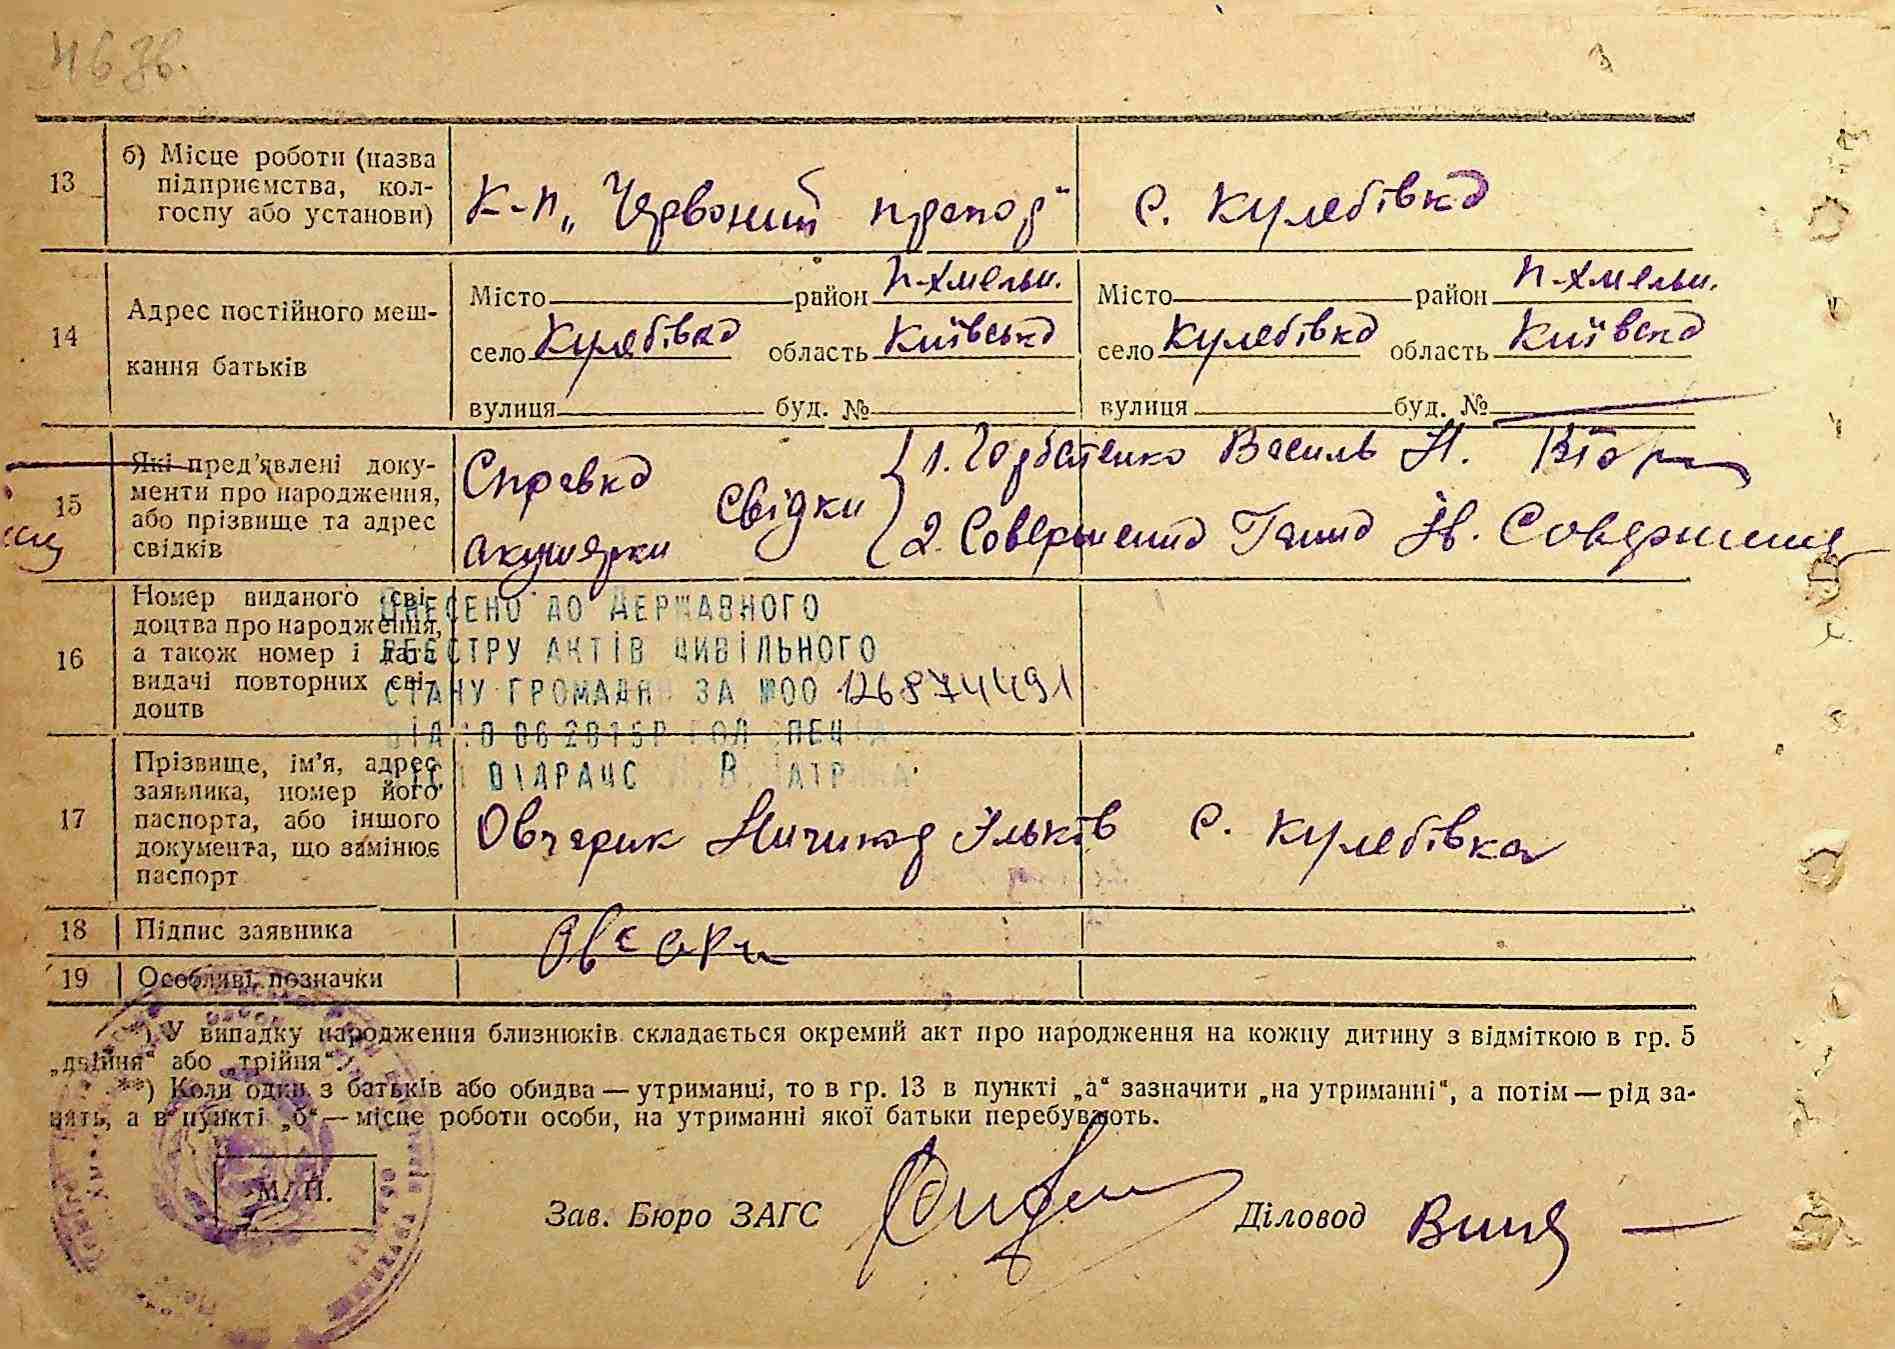 46 зв.
13 б) Місце роботи (назва підприємства, колгоспу або установи) К-п „Червоний прапор" с. Кулебівка
14 Адрес постійного мешкання батьків
Місто район П-Хмельн. Місто район П-Хмельн.
село Кулебівка область Київська село Кулебівка область Київська
вулиця буд. № вулиця буд. №
15 Які пред'явлені документи про народження, або прізвище та адрес свідків
Справка акушерки свідки
1. Горбатенко Василь Н.
2. Совершенна Ганна Ів. Совершенна
16 Номер виданого свідоцтва про народження, а також номер і дата видачі повторних свідоцтв
ВНЕСЕНО ДО ДЕРЖАВНОГО
РЕЄСТРУ АКТІВ ЦИВІЛЬНОГО
СТАНУ ГРОМАДЯН ЗА №00 126874491
ВІД 10 06 2015Р ГОЛ СПЕЦІА
ВІДРАЦС
17 Прізвище, ім'я, адрес заявника, номер його паспорта, або іншого документа, що замінює паспорт
Овчарик Ничипор Ільків с. Кулебівка
18 Підпис заявника
19 Особливі позначки
*) У випадку народження близнюків складається окремий акт про народження на кожну дитину з відміткою в гр. 5
„двійня" або „трійня".
**) Коли один з батьків або обидва — утриманці, то в гр. 13 в пункті „а" зазначити „на утриманні", а потім — рід за-
нять, а в пункті „б" — місце роботи особи, на утриманні якої батьки перебувають.
М. П.
Зав. Бюро ЗАГС Діловод